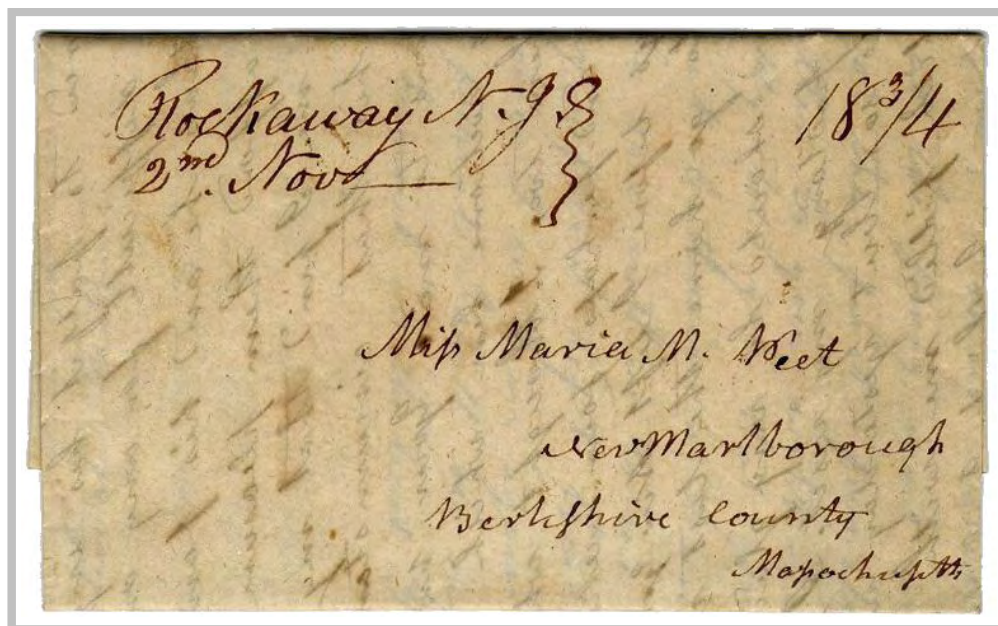 Rockaway N. J.
18 3/4
2nd. Nov
Miss Maria M. Peet
New Marlborough
Berkshire County
Massachusetts